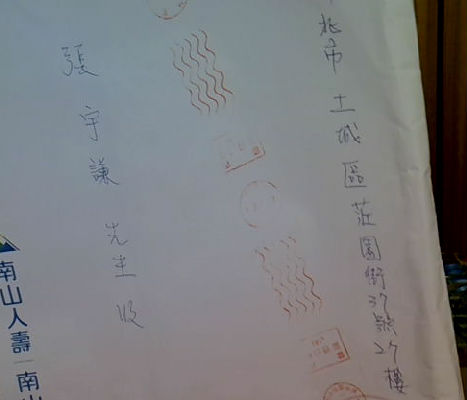 北市土城區莊園街37號27樓
張宇謙 先生 收
南山人壽
南山